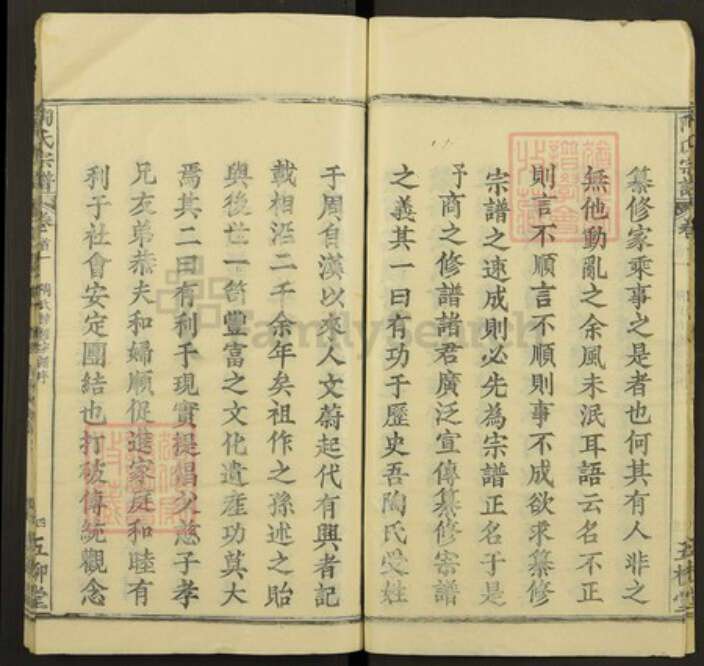 纂修家乘事之是者也何其有人非之
無他動亂之余風未泯耳語云名不正
則言不順言不順則事不成欲求纂修
宗譜之速成則必先為宗譜正名于是
予商之修譜諸君廣泛宣傳纂修宗譜
之義其一曰有功于歷史吾陶氏受姓
于周自漢以來人文蔚起代有興者記
載相沿二千余年矣祖作之孫述之貽
與後世一筒豐富之文化遺産功莫大
焉其二曰有利于現實提倡父慈子孝
兄友弟恭夫和婦順促進家庭和睦有
利于社會安定團結也打破傳統觀念
陶氏宗譜
卷首一
四
五柳堂
FamilySearch